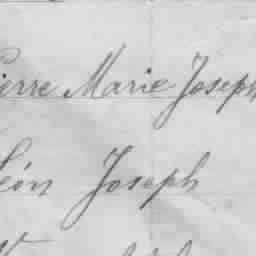 ierre Marie Joseph
Léon Joseph